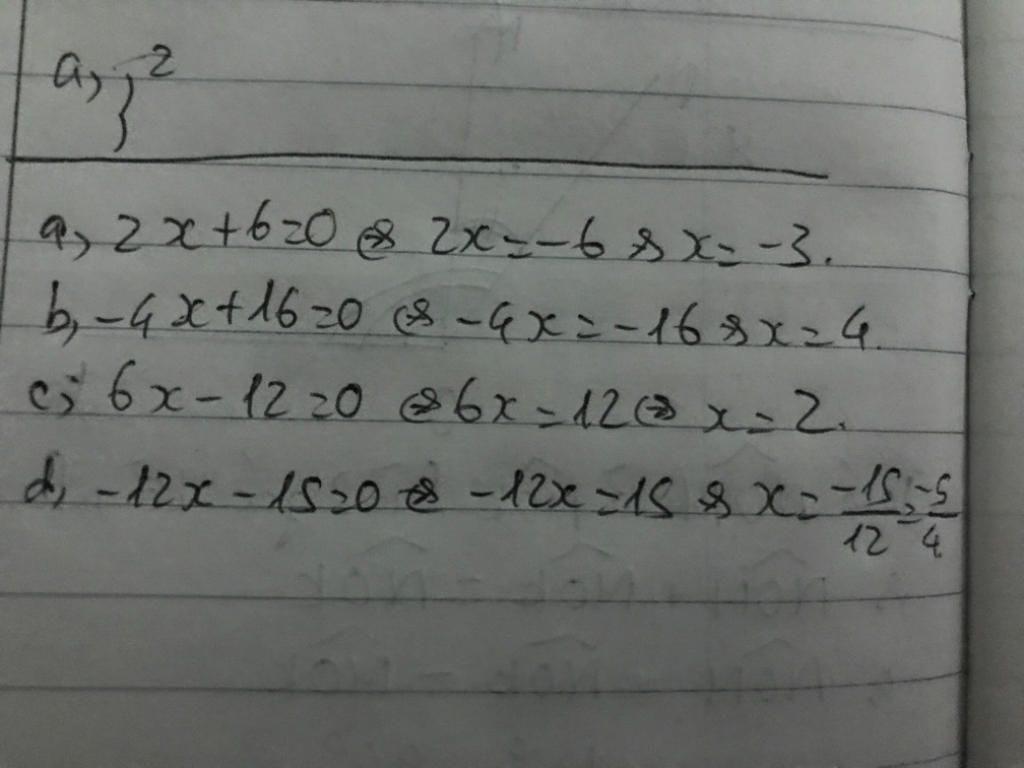 a, } 2
a, 2x+6=0 ⇔ 2x=-6 ⇔ x=-3.
b, -4x+16=0 ⇔ -4x=-16 ⇔ x=4.
c, 6x-12=0 ⇔ 6x=12 ⇔ x=2.
d, -12x-15=0 ⇔ -12x=15 ⇔ x=-15/12=-5/4